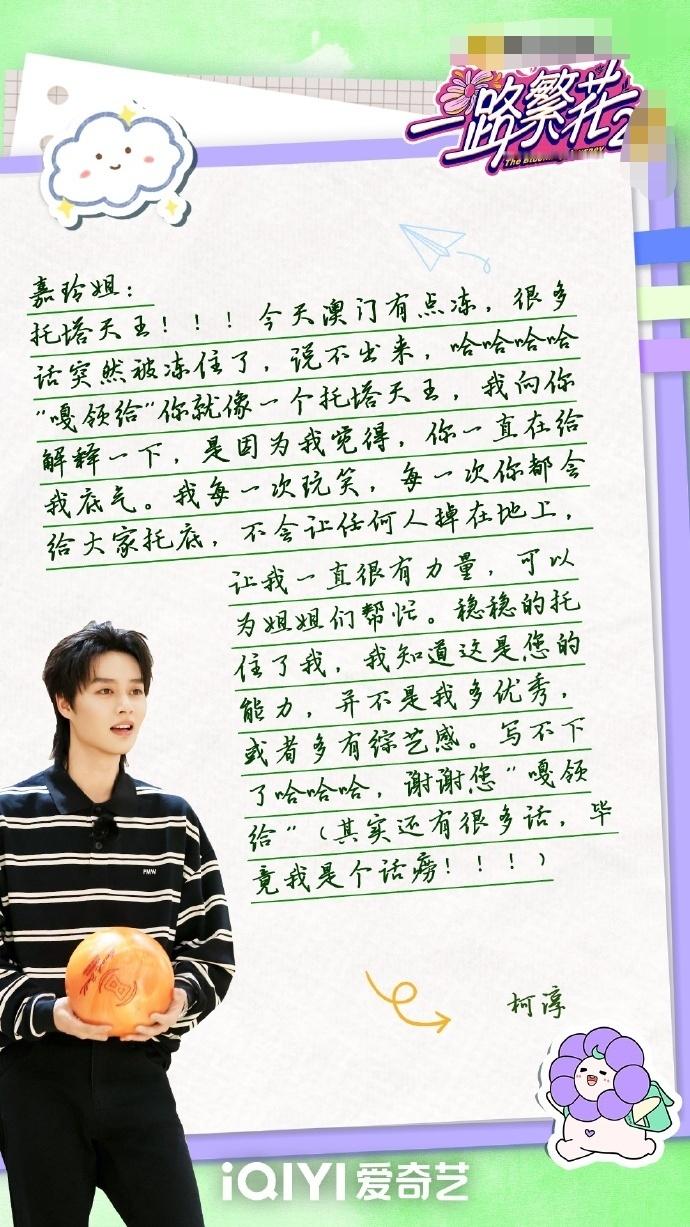 一路繁花2
The Blooming Journey
嘉玲姐：
托塔天王！！！今天澳门有点冻，很多
话突然被冻住了，说不出来，哈哈哈哈
“嘎领给”你就像一个托塔天王，我向你
解释一下，是因为我觉得，你一直在给
我底气。我每一次玩笑，每一次你都会
给大家托底，不会让任何人掉在地上，
让我一直很有力量，可以
为姐姐们帮忙。稳稳的托
住了我，我知道这是您的
能力，并不是我多优秀，
或者多有综艺感。写不下
了哈哈哈，谢谢您“嘎领
给”（其实还有很多话，毕
竟我是个话痨！！！）
柯淳
iQIYI 爱奇艺